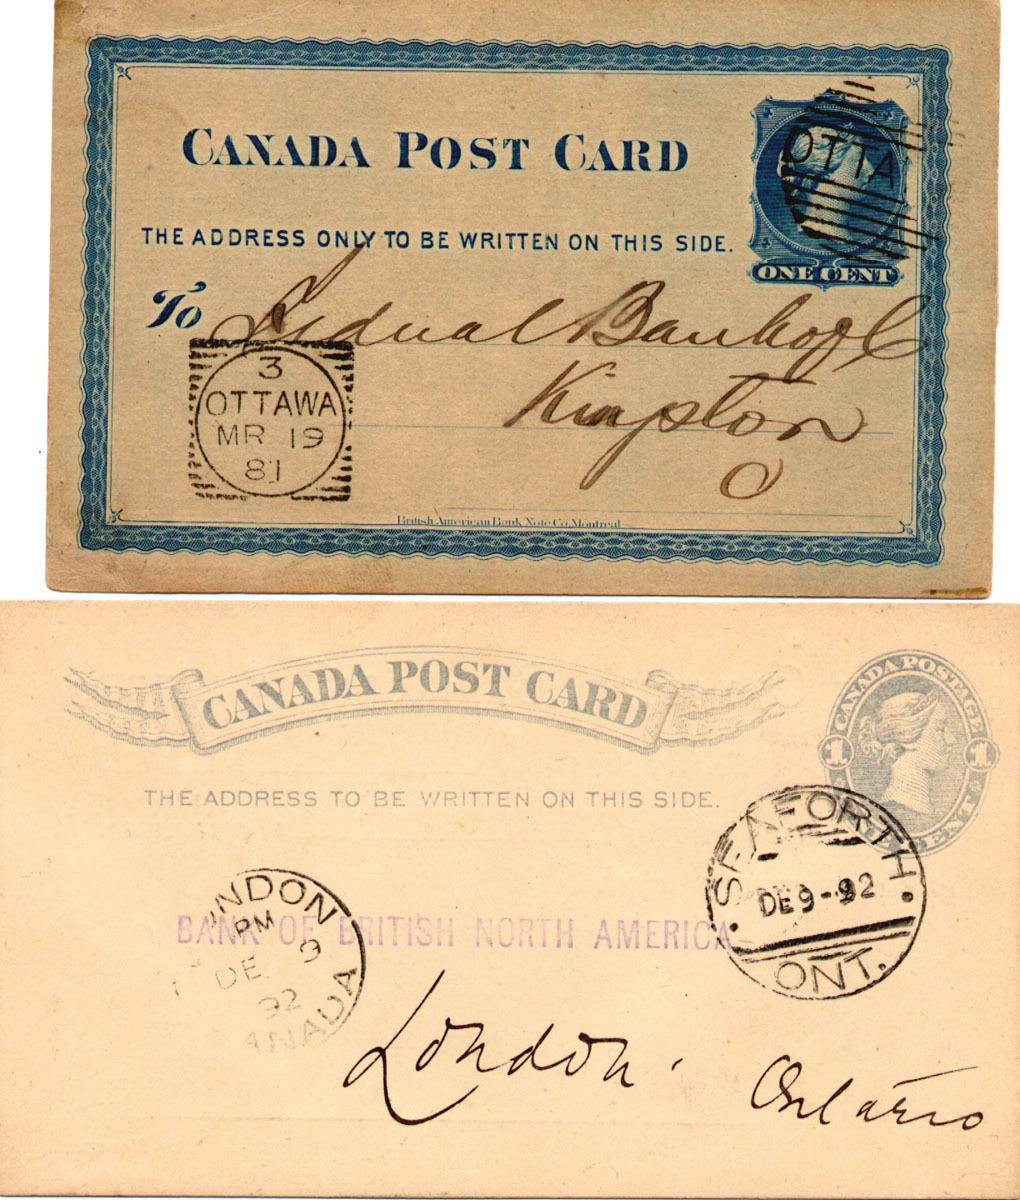 CANADA POST CARD
OTTA
THE ADDRESS ONLY TO BE WRITTEN ON THIS SIDE.
ONE CENT
To
Bank of
Kingston
O
3
OTTAWA
MR 19
81
British American Bank Note Co. Montreal
CANADA POST CARD
CANADA POSTAGE
1 1
CENT
THE ADDRESS TO BE WRITTEN ON THIS SIDE.
SEAFORTH
DE 9-92
ONT.
NDON
PM
DE 9
92
ANADA
BANK OF BRITISH NORTH AMERICA
London.
Ontario